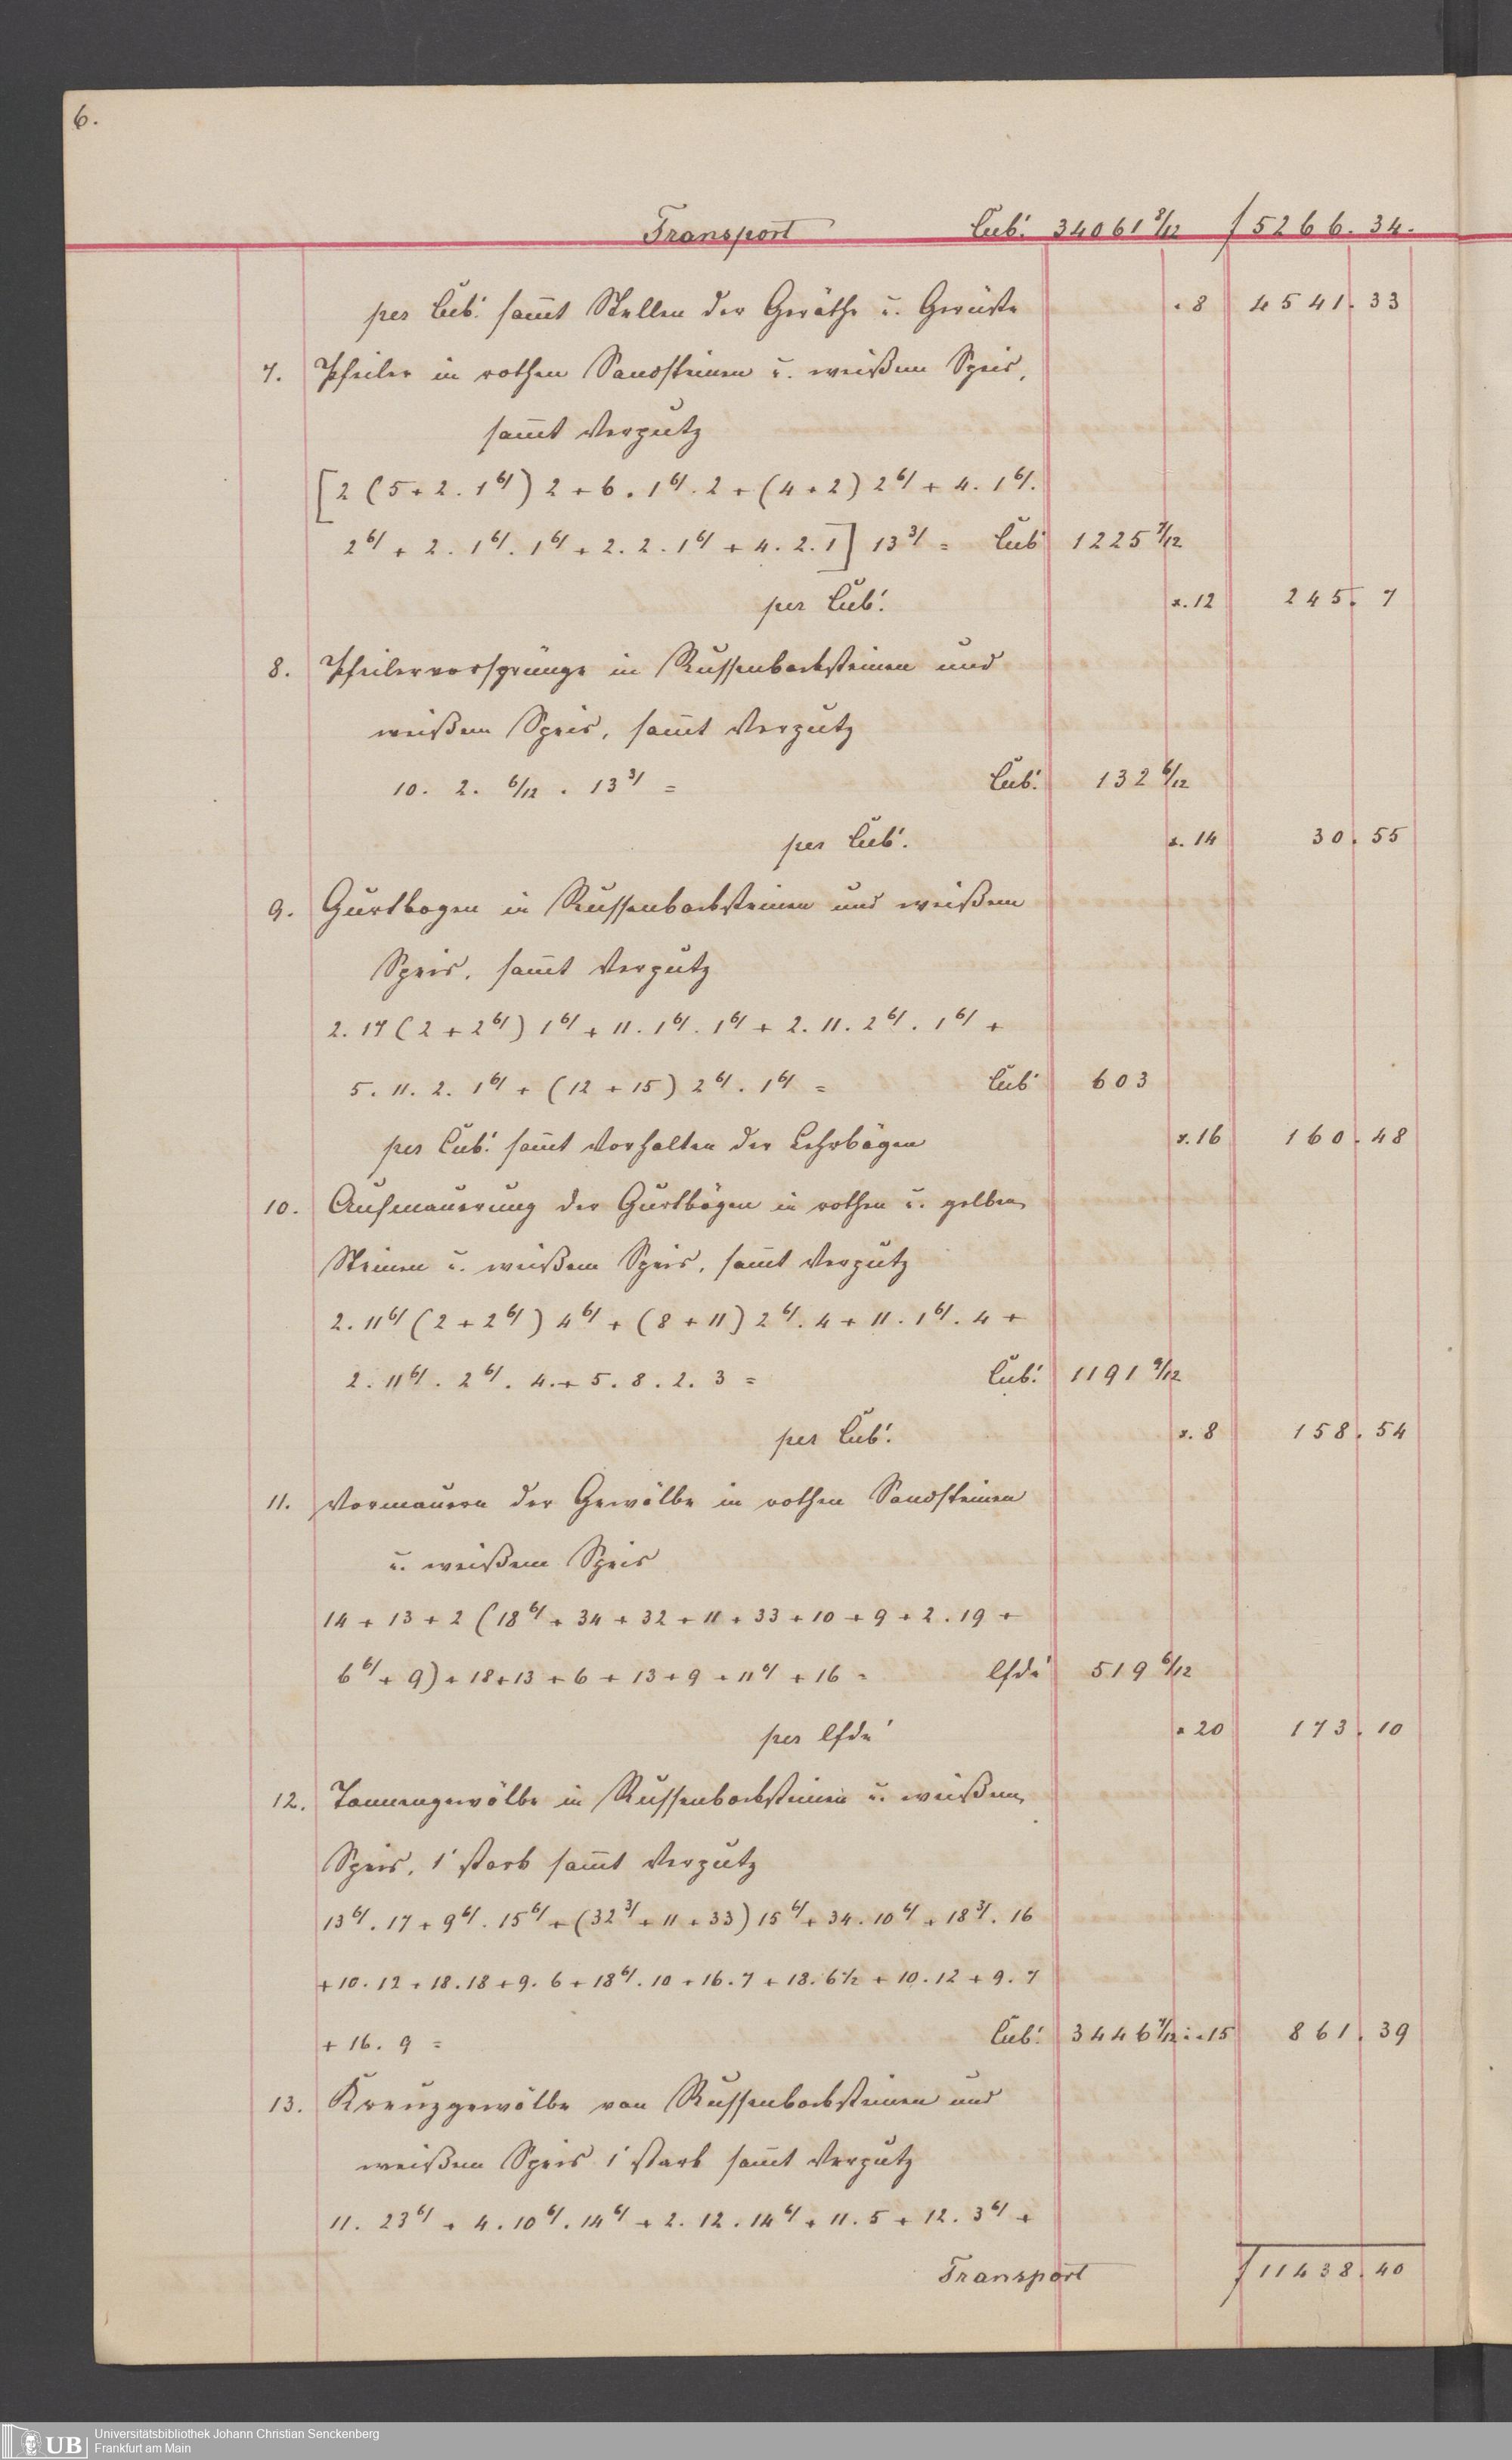 6.
Transport Cub.' 34061 8/12 f 5266. 34.
per Cub.' sam̄t Stellen der Geräthe u. Gerüste x 8 4541. 33
7. Pfeiler in rothen Sandsteinen u. weißem Speis,
sam̄t Verputz
[2 (5+2. 1 6/) 2 + 6. 1 6/. 2 + (4+2) 2 6/ + 4. 1 6/.
2 6/ + 2. 1 6/. 1 6/ + 2. 2. 1 6/ + 4. 2. 1] 13 3/ = Cub' 1225 7/12
per Cub.' x. 12 245. 7
8. Pfeilervorsprünge in Russenbacksteinen und
weißem Speis, sam̄t Verputz
10. 2. 6/12 . 13 3/ = Cub.' 132 6/12
per Cub'. x. 14 30. 55
9. Gurtbogen in Russenbacksteinen und weißem
Speis, sam̄t Verputz
2. 17 (2 + 2 6/) 1 6/ + 11. 1 6/. 1 6/ + 2. 11. 2 6/. 1 6/ +
5. 11. 2. 1 6/ + (12 + 15) 2 6/. 1 6/ = Cub' 603
per Cub.' sam̄t Vorhalten der Lehrbögen x. 16 160. 48
10. Aufmauerung der Gurtbögen in rothen u. gelben
Steinen u. weißem Speis, sam̄t Verputz
2. 11 6/ (2 + 2 6/) 4 6/ + (8 + 11) 2 6/. 4 + 11. 1 6/. 4 +
2. 11 6/. 2 6/. 4. + 5. 8. 2. 3 = Cub.' 1191 9/12
per Cub.' x. 8 158. 54
11. Vormauern der Gewölbe in rothen Sandsteinen
u. weißem Speis
14 + 13 + 2 (18 6/ + 34 + 32 + 11 + 33 + 10 + 9 + 2. 19 +
6 6/ + 9) + 18 + 13 + 6 + 13 + 9 + 11 6/ + 16 = lfde' 519 6/12
per lfde' x 20 173. 10
12. Tonnengewölbe in Russenbacksteinen u. weißem
Speis, 1' stark sam̄t Verputz
13 6/. 17 + 9 6/. 15 6/ + (32 3/ + 11 + 33) 15 6/ + 34. 10 6/ + 18 3/. 16
+ 10. 12 + 18. 18 + 9. 6 + 18 6/. 10 + 16. 7 + 18. 6 1/2 + 10. 12 + 9. 7
+ 16. 9 = Cub.' 3446 7/12 : x 15 861. 39
13. Kreuzgewölbe von Russenbacksteinen und
weißem Speis 1' stark sam̄t Verputz
11. 23 6/ + 4. 10 6/. 14 6/ + 2. 12. 14 6/ + 11. 5 + 12. 3 6/ +
Transport f 11438. 40
UB Universitätsbibliothek Johann Christian Senckenberg
Frankfurt am Main